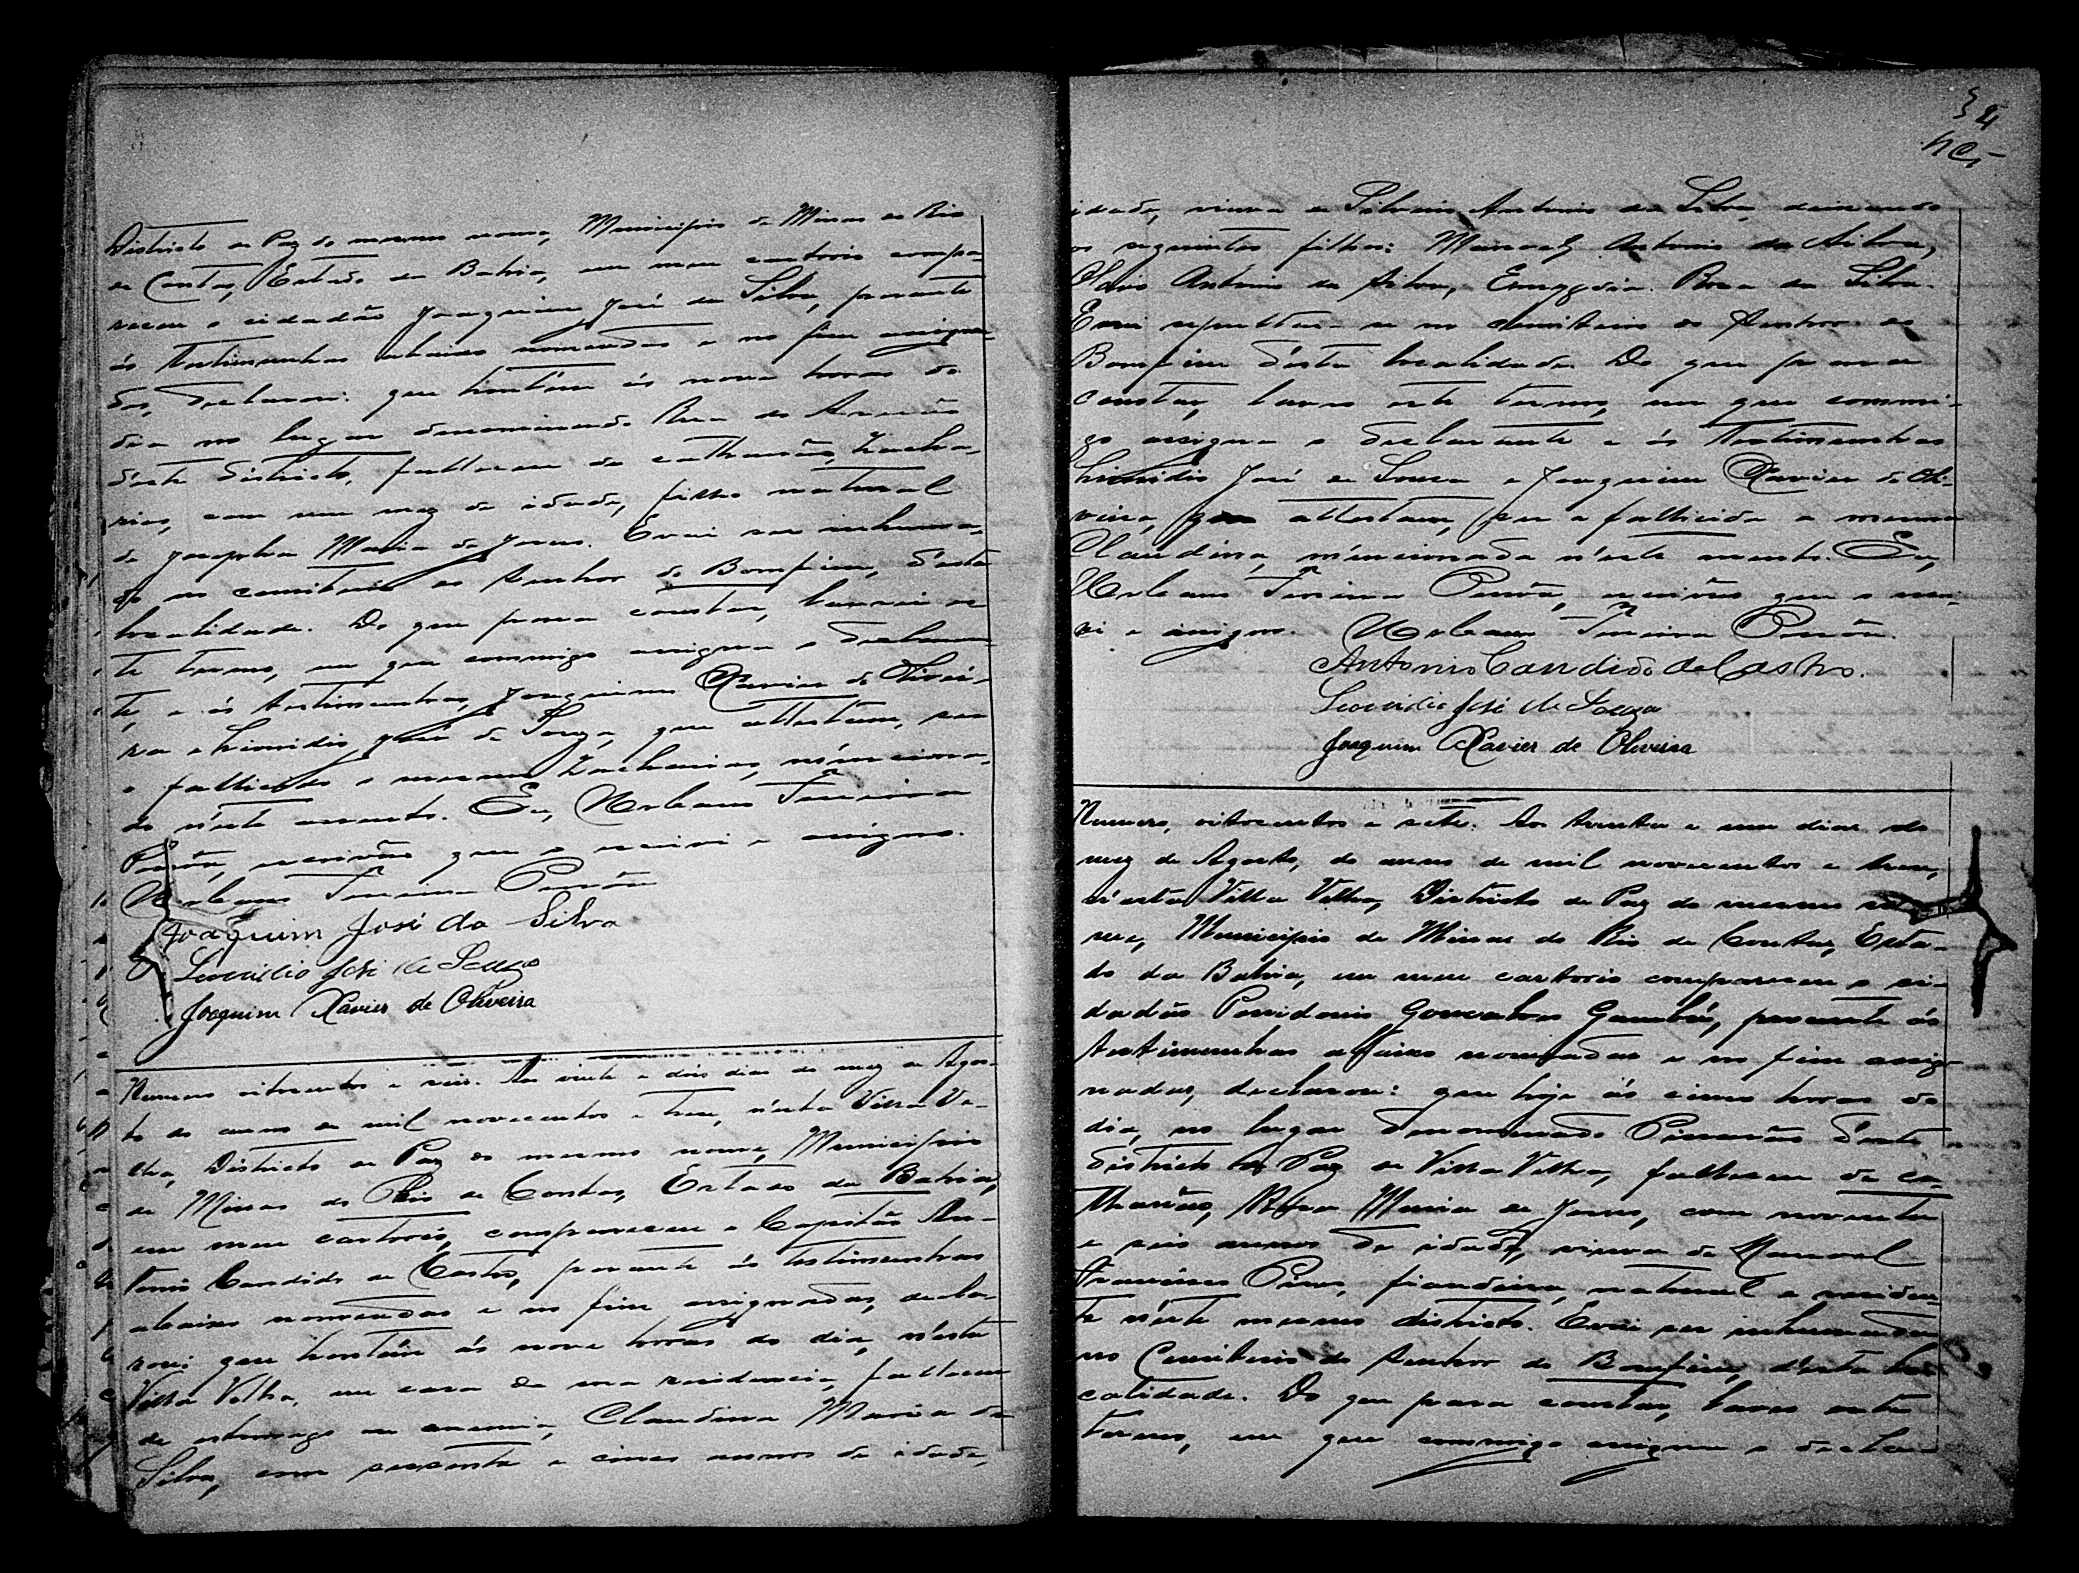 Districto de Paz do mesmo nome, Municipio de Minas do Rio
de Contas, Estado da Bahia, em meu cartorio compa-
receu o cidadão Joaquim José da Silva, perante
ás testimunhas abaixo nomeadas e no fim assigna-
das, declarou: que hontêm ás nove horas do
dia no lugar denominado Rua do
d'este districto, falleceu de catharrão, Zacha-
rias, com um mez de idade, filho natural
de Josepha Maria de Jesus. E vai ser inhuma-
do no cemiterio do Senhor do Bomfim, d'esta
localidade. Do que para constar, lavrei es-
te termo, em que commigo assigna o declaran-
te, e ás testimunhas, Joaquim Xavier de Olivei-
ra e Leonidio José de Souza, que attestam, ser
o fallecido o mesmo Zacharias, menciona-
do n'este assento. Eu, Urbano Pereira
escrivão que o escrevi e assigno.
Urbano Pereira
Joaquim José da Silva
Leonidio José de Souza
Joaquim Xavier de Oliveira
Numero oitocentos e seis. Aos vinte e dois dias do mez de Agos-
to do anno de mil novecentos e trese, n'esta Villa Ve-
lha, Districto de Paz do mesmo nome, Municipio
de Minas do Rio de Contas, Estado da Bahia,
em meu cartorio, compareceu o Capitão An-
tonio Candido de Castro, perante ás testimunhas
abaixo nomeadas e no fim assignadas, decla-
rou: que hontêm ás nove horas do dia, n'esta
Villa Velha, em casa de sua residencia, falleceu
de estomago ou anemia, Claudina Maria da
Silva, com sessenta e cinco annos de idade,
34
idade, viuva de Silverio Antonio da Silva, deixando
os seguintes filhos: Manoel Antonio da Silva,
Antonio da Silva, Rosa da Silva.
E vai sepultar-se no cemiterio do Senhor do
Bomfim d'esta localidade. Do que para
constar, lavro este termo, em que commi-
go assigna o declarante e ás testimunhas
Leonidio José de Souza e Joaquim Xavier de Oli-
veira, que attestam, ser a fallecida a mesma
Claudina, mencionada n'este assento. Eu,
Urbano Pereira escrivão que o escre-
vi e assigno. Urbano Pereira
Antonio Candido de Castro.
Leonidio José de Souza
Joaquim Xavier de Oliveira
Numero, oitocentos e sete. Aos trinta e um dias do
mez de Agosto, do anno de mil novecentos e trese,
n'esta Villa Velha, Districto de Paz do mesmo no-
me, Municipio de Minas do Rio de Contas, Esta-
do da Bahia, em meu cartorio compareceu o ci-
dadão Possidonio Gonsalves perante ás
testimunhas abaixo nomeadas e no fim assig-
nadas, declarou: que hoje ás cinco horas do
dia, no lugar denominado d'este
districto de Paz de Villa Velha, falleceu de ca-
tharrão, Maria de Jesus, com noventa
e seis annos de idade, viuva de Manoel
Francisco Pires, fiandeira, natural e residen-
te n'este mesmo districto. E vai ser inhumada
no Cemiterio do Senhor do Bomfim, d'esta lo-
calidade. Do que para constar, lavro este
termo, em que commigo assigna o decla-